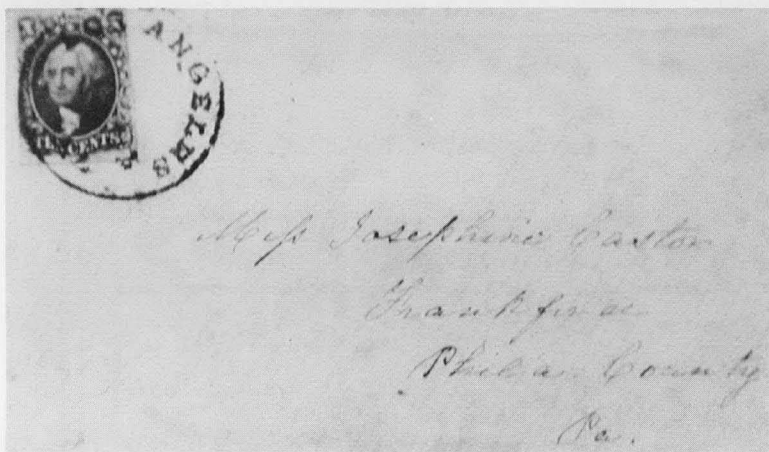 ANGELES
TEN CENTS
Miss Josephine Castor
Frankford
County
Pa.